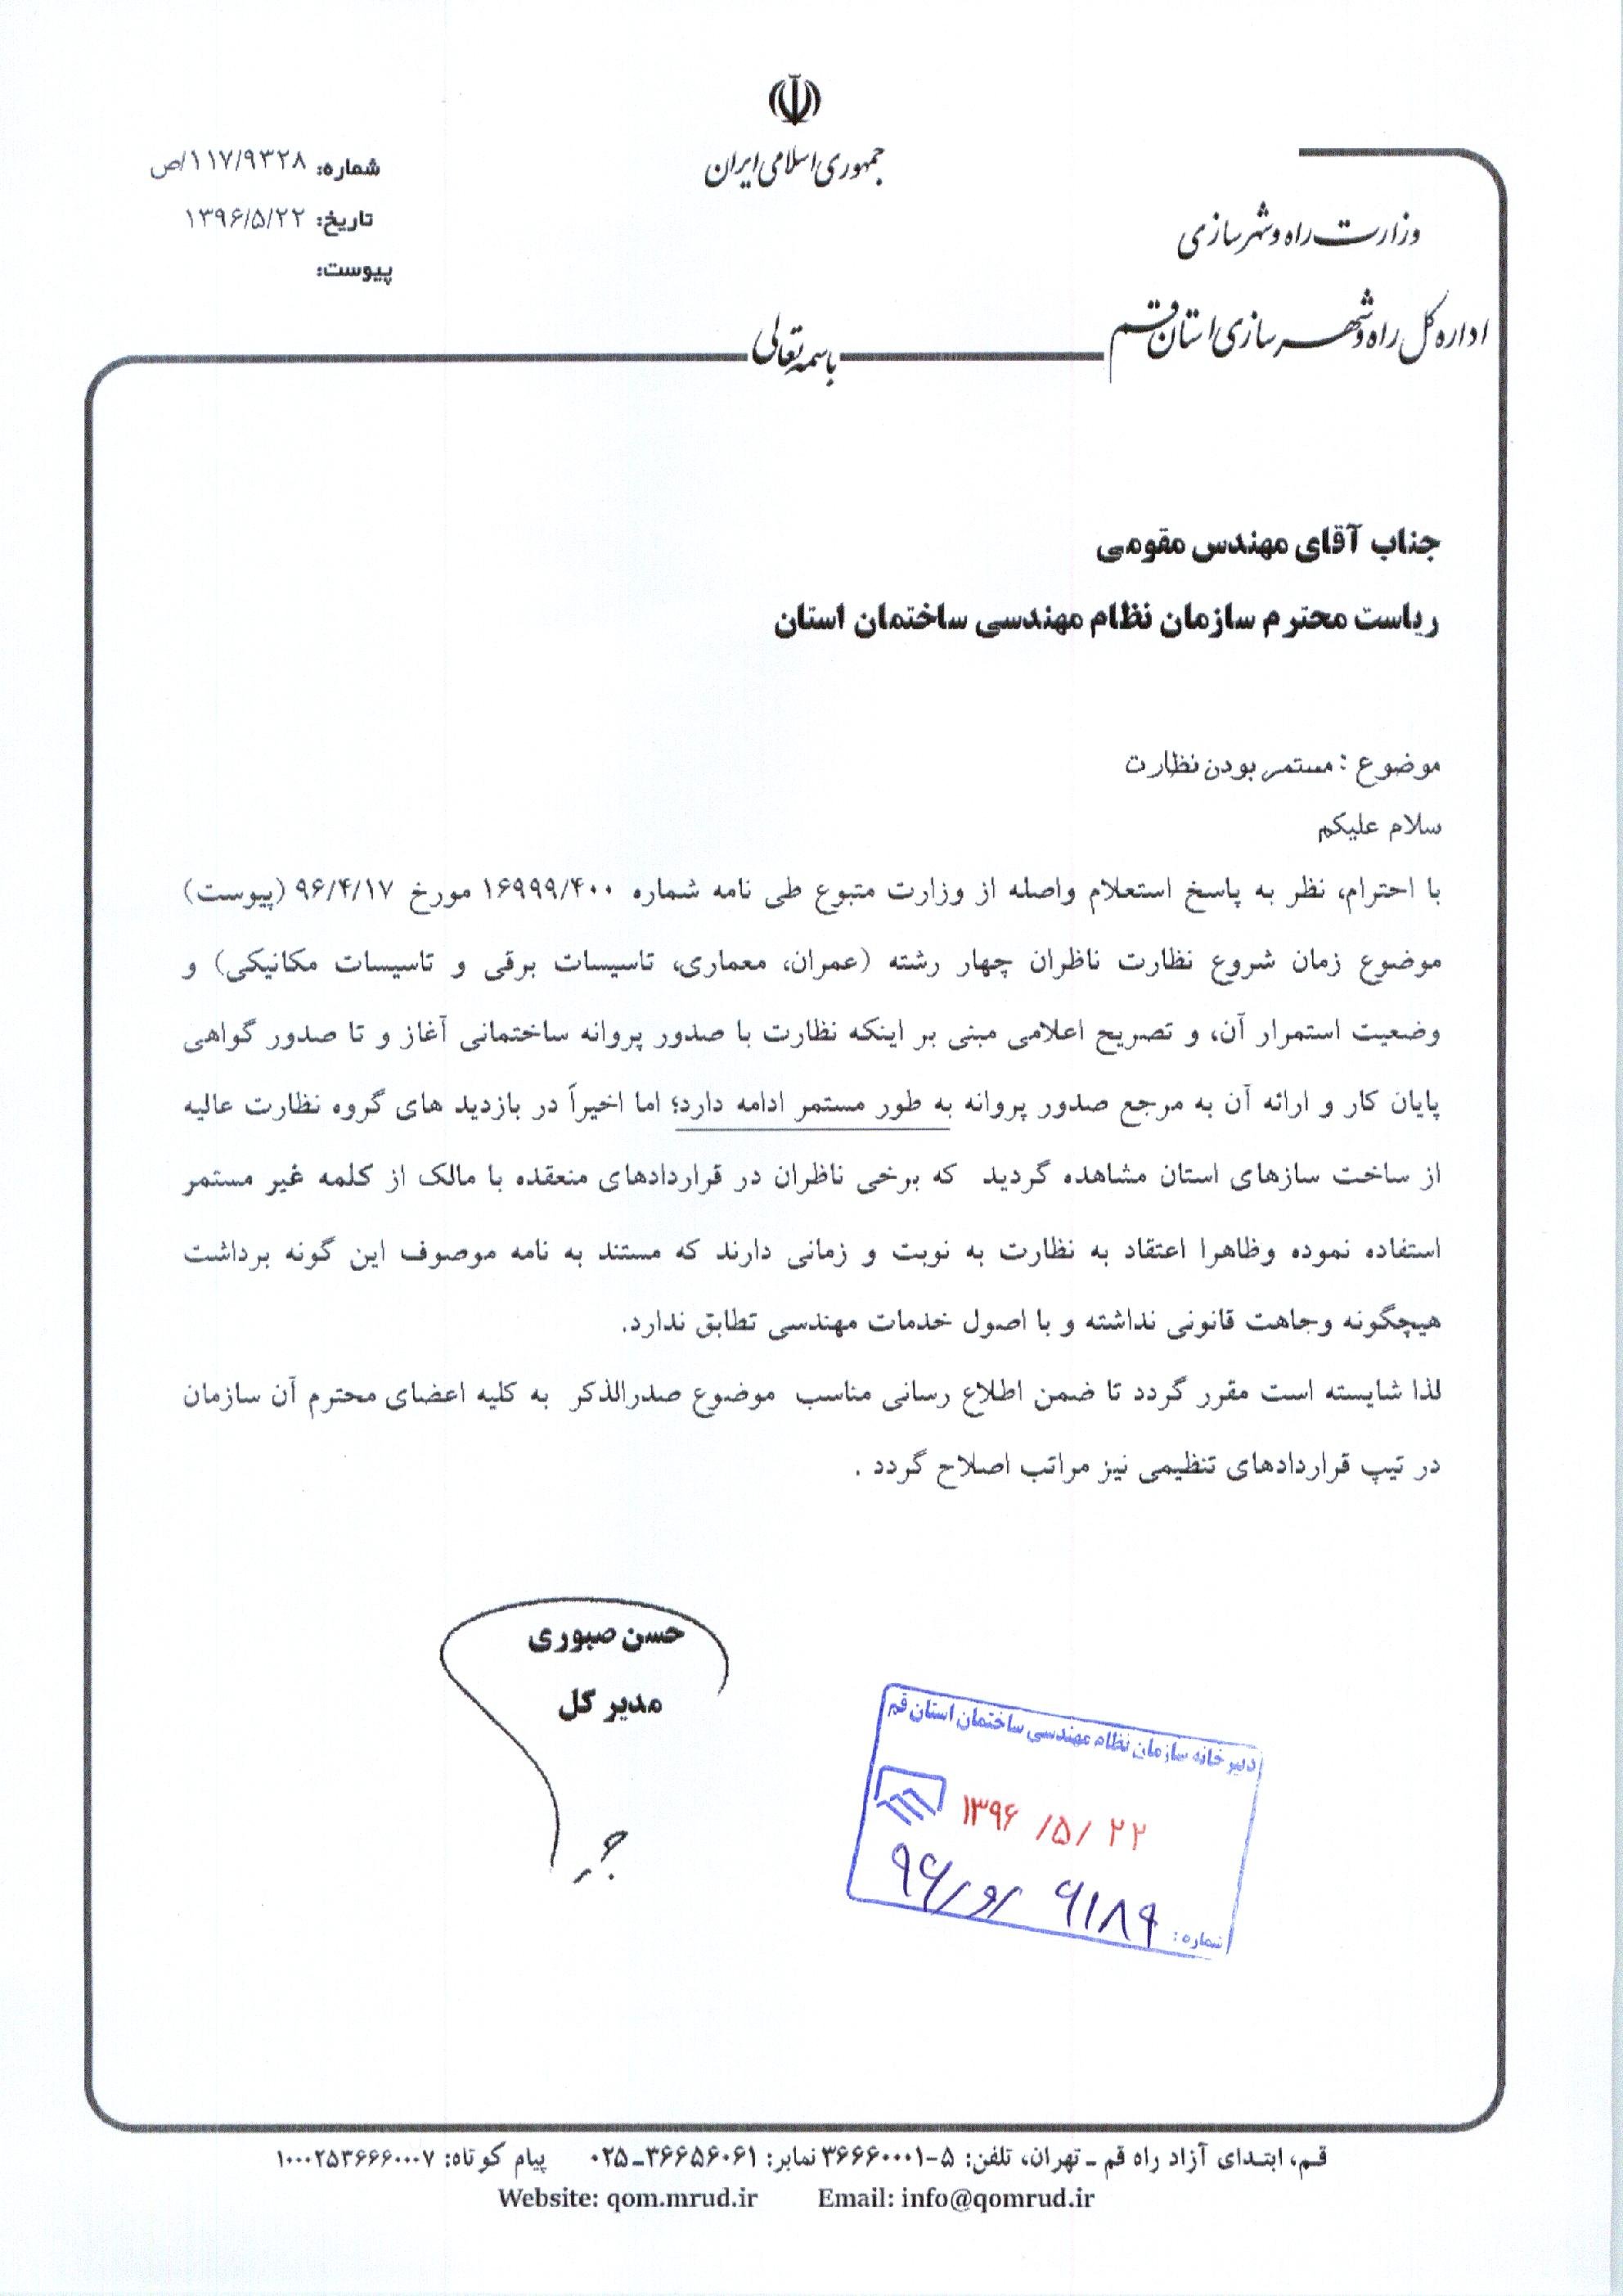 جمهوری اسلامی ایران
وزارت راه و شهرسازی
اداره کل راه و شهرسازی استان قم
شماره: ۱۱۷/۹۳۲۸/ص
تاریخ: ۱۳۹۶/۵/۲۲
پیوست:
باسمه تعالی
جناب آقای مهندس مقومی
ریاست محترم سازمان نظام مهندسی ساختمان استان
موضوع : مستمر بودن نظارت
سلام علیکم
با احترام، نظر به پاسخ استعلام واصله از وزارت متبوع طی نامه شماره ۱۶۹۹۹/۴۰۰ مورخ ۹۶/۴/۱۷ (پیوست)
موضوع زمان شروع نظارت ناظران چهار رشته (عمران، معماری، تاسیسات برقی و تاسیسات مکانیکی) و
وضعیت استمرار آن، و تصریح اعلامی مبنی بر اینکه نظارت با صدور پروانه ساختمانی آغاز و تا صدور گواهی
پایان کار و ارائه آن به مرجع صدور پروانه به طور مستمر ادامه دارد؛ اما اخیراً در بازدید های گروه نظارت عالیه
از ساخت سازهای استان مشاهده گردید که برخی ناظران در قراردادهای منعقده با مالک از کلمه غیر مستمر
استفاده نموده وظاهرا اعتقاد به نظارت به نوبت و زمانی دارند که مستند به نامه موصوف این گونه برداشت
هیچگونه وجاهت قانونی نداشته و با اصول خدمات مهندسی تطابق ندارد.
لذا شایسته است مقرر گردد تا ضمن اطلاع رسانی مناسب موضوع صدرالذکر به کلیه اعضای محترم آن سازمان
در تیپ قراردادهای تنظیمی نیز مراتب اصلاح گردد .
حسن صبوری
مدیر کل
دبیرخانه سازمان نظام مهندسی ساختمان استان قم
۱۳۹۶ /۵/ ۲۲
شماره: ۶۱۸۹ /و/ ۹۶
قم، ابتدای آزاد راه قم ـ تهران، تلفن: ۵-۳۶۶۶۰۰۰۱ نمابر: ۳۶۶۵۶۰۶۱-۰۲۵ پیام کوتاه: ۱۰۰۰۲۵۳۶۶۶۰۰۰۷
Website: qom.mrud.ir Email: info@qomrud.ir